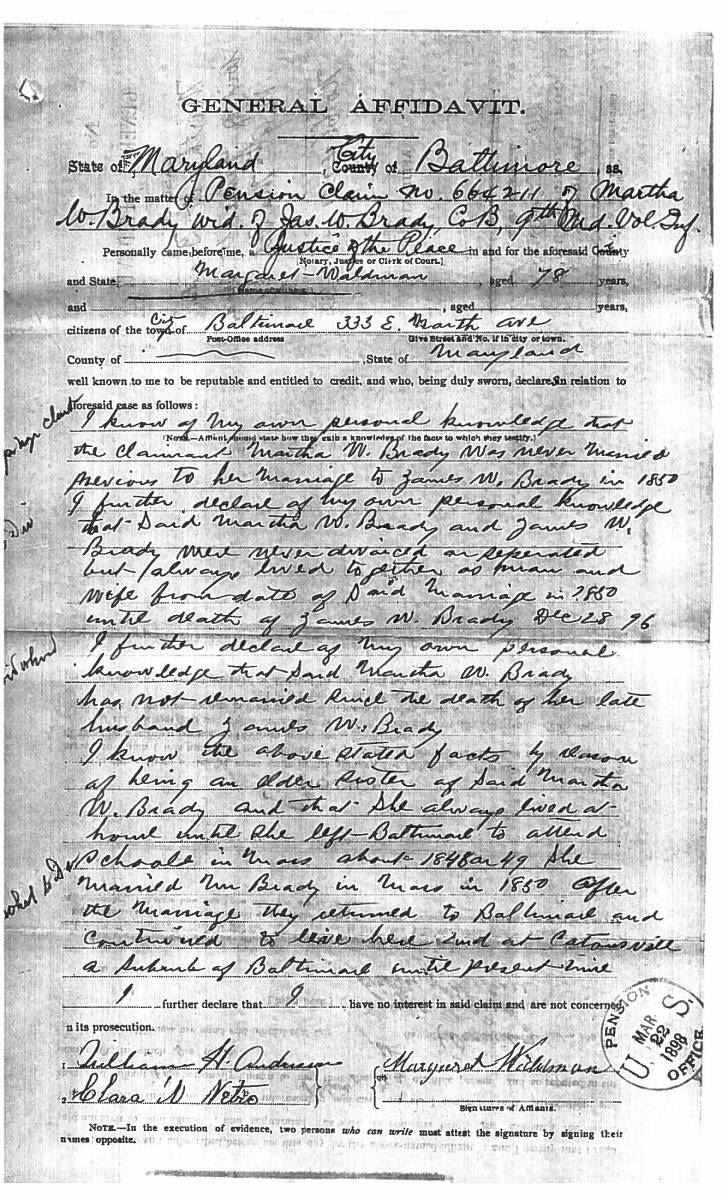 GENERAL AFFIDAVIT.
State of Maryland, City County of Baltimore, ss.
In the matter of Pension Claim No. 664211 of Martha
W. Brady wid. of Jas. W. Brady, Co B, 9th Md. Vol. Inf.
Personally came before me, a Justice of the Peace in and for the aforesaid County
[Notary, Justice or Clerk of Court.]
and State, Margaret Waldman, aged 78 years,
and , aged years,
citizens of the town City of Baltimore 333 E. North ave
Post-Office address Give Street and No. if in city or town.
County of , State of Maryland
well known to me to be reputable and entitled to credit, and who, being duly sworn, declares in relation to
aforesaid case as follows:
I know of my own personal knowledge that
[NOTE.—Affiant should state how they gain a knowledge of the facts to which they testify.]
the claimant Martha W. Brady was never married
previous to her marriage to James W. Brady in 1850
I further declare of my own personal knowledge
that Said Martha W. Brady and James W.
Brady were never divorced or seperated
but always lived together as man and
wife from date of Said Marriage in 1850
until death of James W. Brady Dec 28 96
I further declare of my own personal
knowledge that Said Martha W. Brady
has not remarried since the death of her late
husband James W. Brady
I know the above stated facts by reason
of being an elder sister of Said Martha
W. Brady and that She always lived at
home until She left Baltimore to attend
Schoole in Mass about 1848 or 49 She
married Mr Brady in Mass in 1850 After
the marriage they returned to Baltimore and
continued to live here and at Catonsville
a Suburb of Baltimore until present time
I further declare that I have no interest in said claim and are not concerned
in its prosecution.
1. William H. Anderson
Margaret Wildman
2. Clara N
Signatures of Affiants.
NOTE.—In the execution of evidence, two persons who can write must attest the signature by signing their
names opposite.
U. S. PENSION OFFICE
MAR 22 1898